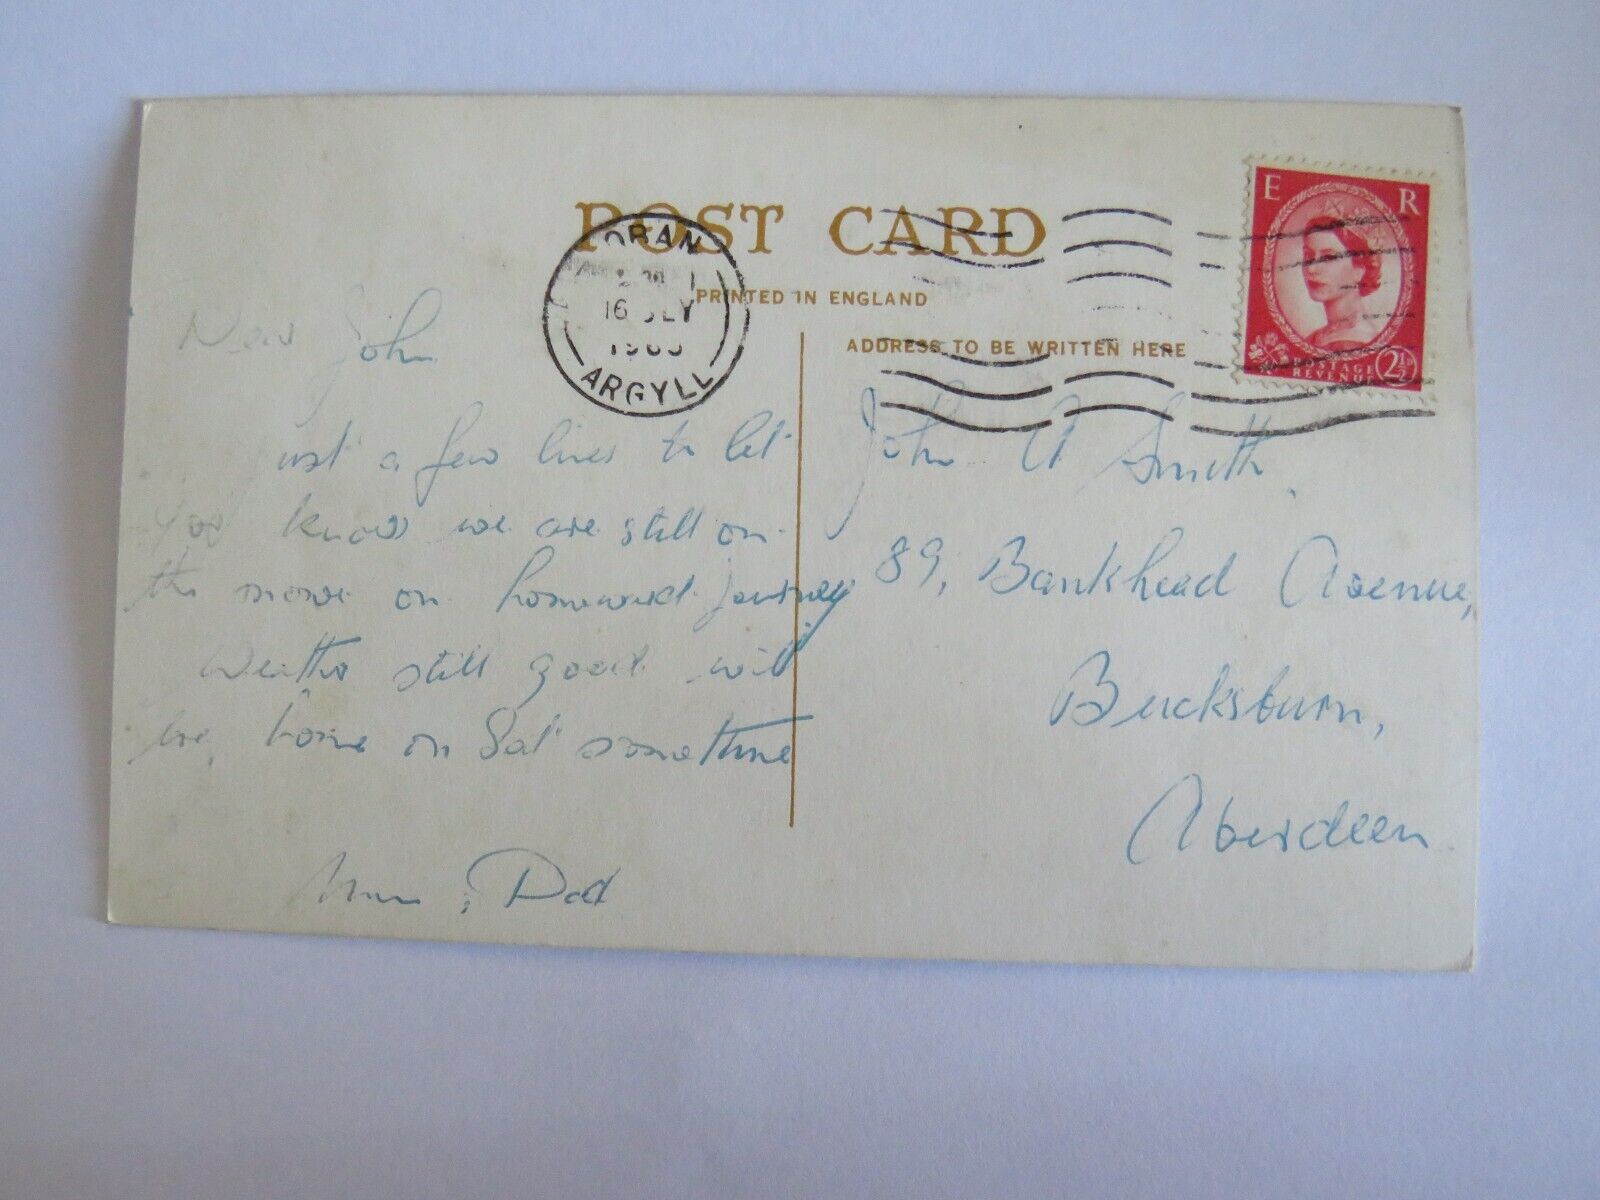 POST CARD
OBAN
16 JLY
ARGYLL
E R
POSTAGE
REVENUE
2½D
PRINTED IN ENGLAND
ADDRESS TO BE WRITTEN HERE
Dear John
Just a few lines to let
you know we are still on
the move on homeward journey
Weather still good will
be home on Sat sometime
Mum & Dad
John A Smith
89, Bankhead Avenue,
Bucksburn,
Aberdeen